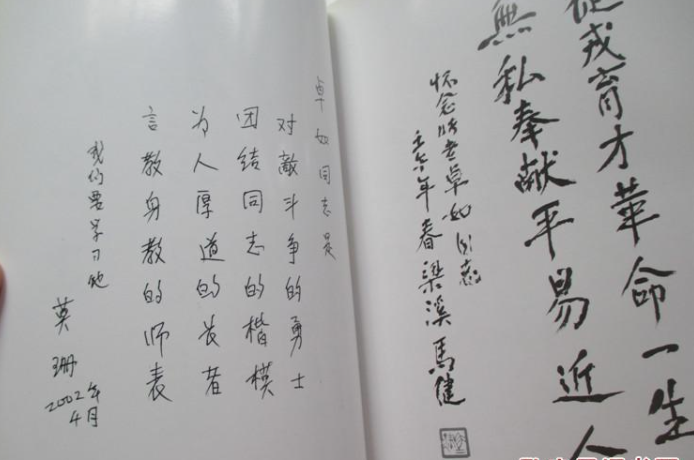 卓如同志是
对敌斗争的勇士
团结同志的楷模
为人厚道的长者
言教身教的师表
我们要学习他
莫珊
2002年
4月
从戎育才革命一生
無私奉献平易近人
怀念战士卓如同志
壬午年春梁溪馬健